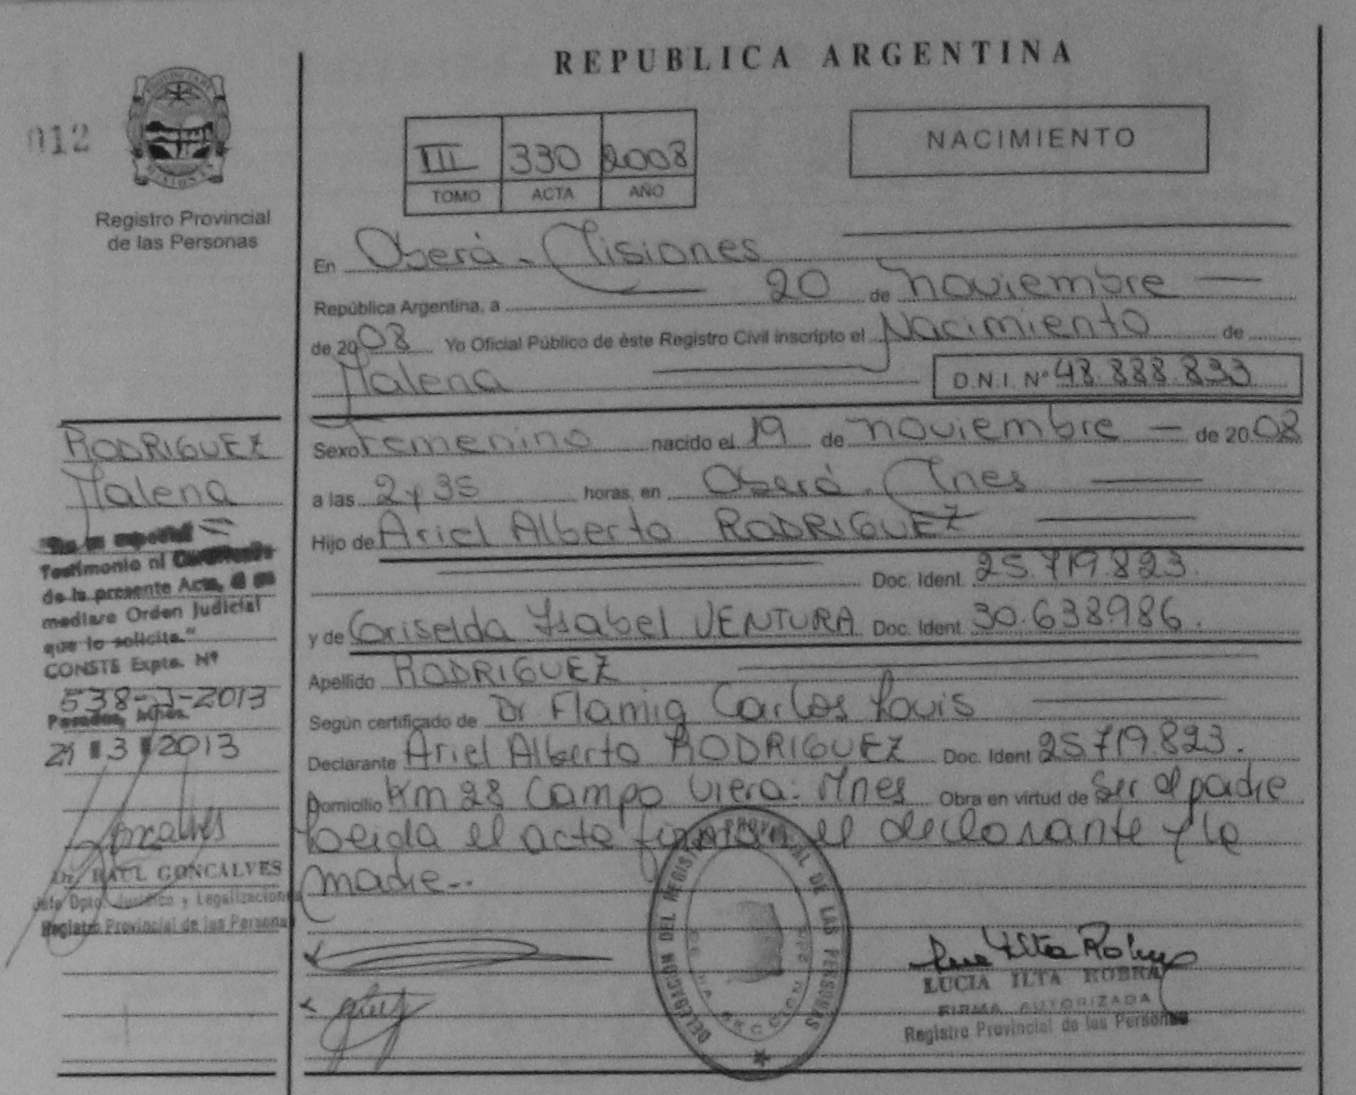 REPUBLICA ARGENTINA
012
Registro Provincial
de las Personas
III 330 2008
TOMO ACTA AÑO
NACIMIENTO
En Oberá - Misiones
República Argentina, a 20 de Noviembre
de 2008 Yo Oficial Público de éste Registro Civil inscripto el Nacimiento de
Malena D.N.I. Nº 48.888.833
Sexo Femenino nacido el 19 de Noviembre de 2008
a las 2 y 35 horas, en Oberá - Mnes
Hijo de Ariel Alberto RODRIGUEZ
Doc. Ident. 25.719.823.
y de Griselda Ysabel VENTURA Doc. Ident. 30.638.986.
Apellido RODRIGUEZ
Según certificado de Dr Flamig Carlos Louis
Declarante Ariel Alberto RODRIGUEZ Doc. Ident 25.719.823.
Domicilio Km 28 Campo Viera: Mnes Obra en virtud de Ser el padre
Leida el acta firman el declarante y la
madre..
RODRIGUEZ
Malena
Testimonio ni
de la presente Acta,
mediare Orden Judicial
que lo solicite."
CONSTE Expte. Nº
538-J-2013
Posadas, Mnes.
21 3 2013
Dr. RAUL GONCALVES
Jefe Dpto. Jurídico y Legalizaciones
Registro Provincial de las Personas
DELEGACION DEL REGISTRO PROVINCIAL DE LAS PERSONAS
LUCIA ILTA ROBRA
FIRMA AUTORIZADA
Registro Provincial de las Personas